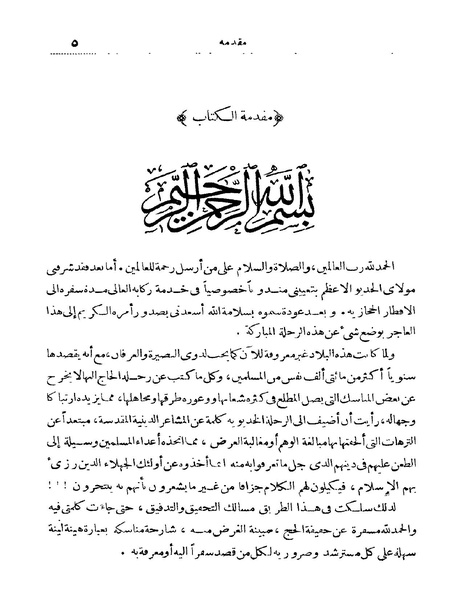 مقدمه ٥
﴿مقدمة الكتاب﴾
بسم الله الرحمن الرحيم
الحمد لله رب العالمين، والصلاة والسلام على من أرسل رحمة للعالمين • أما بعد فقد شرفنى
مولاى الخديو الاعظم بتعيينى مندوبا خصوصياً فى خدمة ركابه العالى مدة سفره الى
الاقطار الحجازيه • وبعد عودة سموه بسلامة الله أسعدنى بصدور أمره الكريم إلى هذا
العاجز بوضع شئ عن هذه الرحلة المباركة •
ولما كانت هذه البلاد غير معروفة للآن كما يجب لذوى البصيرة والعرفان، مع أنه يقصدها
سنوياً أكثر من مائتى ألف نفس من المسلمين، وكل ما كتب عن رحلة الحاج اليها لا يخرج
عن بعض المناسك التى يصل المطلع فى كثرة شعابها ووعورة طرقها ومجاهلها، مما يزيده ارتباكا
وجهاله، رأيت أن أضيف الى الرحلة الخديويه كلمة عن المشاعر الدينية المقدسة، مبتعداً عن
الترهات التى ألحقتها بها مبالغة الوهم أو مغالبة الغرض، مما اتخذه أعداء المسلمين وسيلة إلى
الطعن عليهم فى دينهم الذى جل ما تعرفوا به منه انما أخذوه عن أولئك الجهلاء الذين رزئ
بهم الإسلام، فيكيلون لهم الكلام جزافا من غير ما يشعرون بأنهم به ينتحرون !!!
لذلك سلكت فى هذا الطريق مسالك التحقيق والتدقيق، حتى جاءت كلمتى فيه
والحمد لله مسفرة عن حقيقة الحج، مبينة الغرض منه، شارحة مناسكه بعبارة هينة لينة
سهلة على كل مسترشد وضرورية لكل من قصد سفراً اليه أو معرفة به •